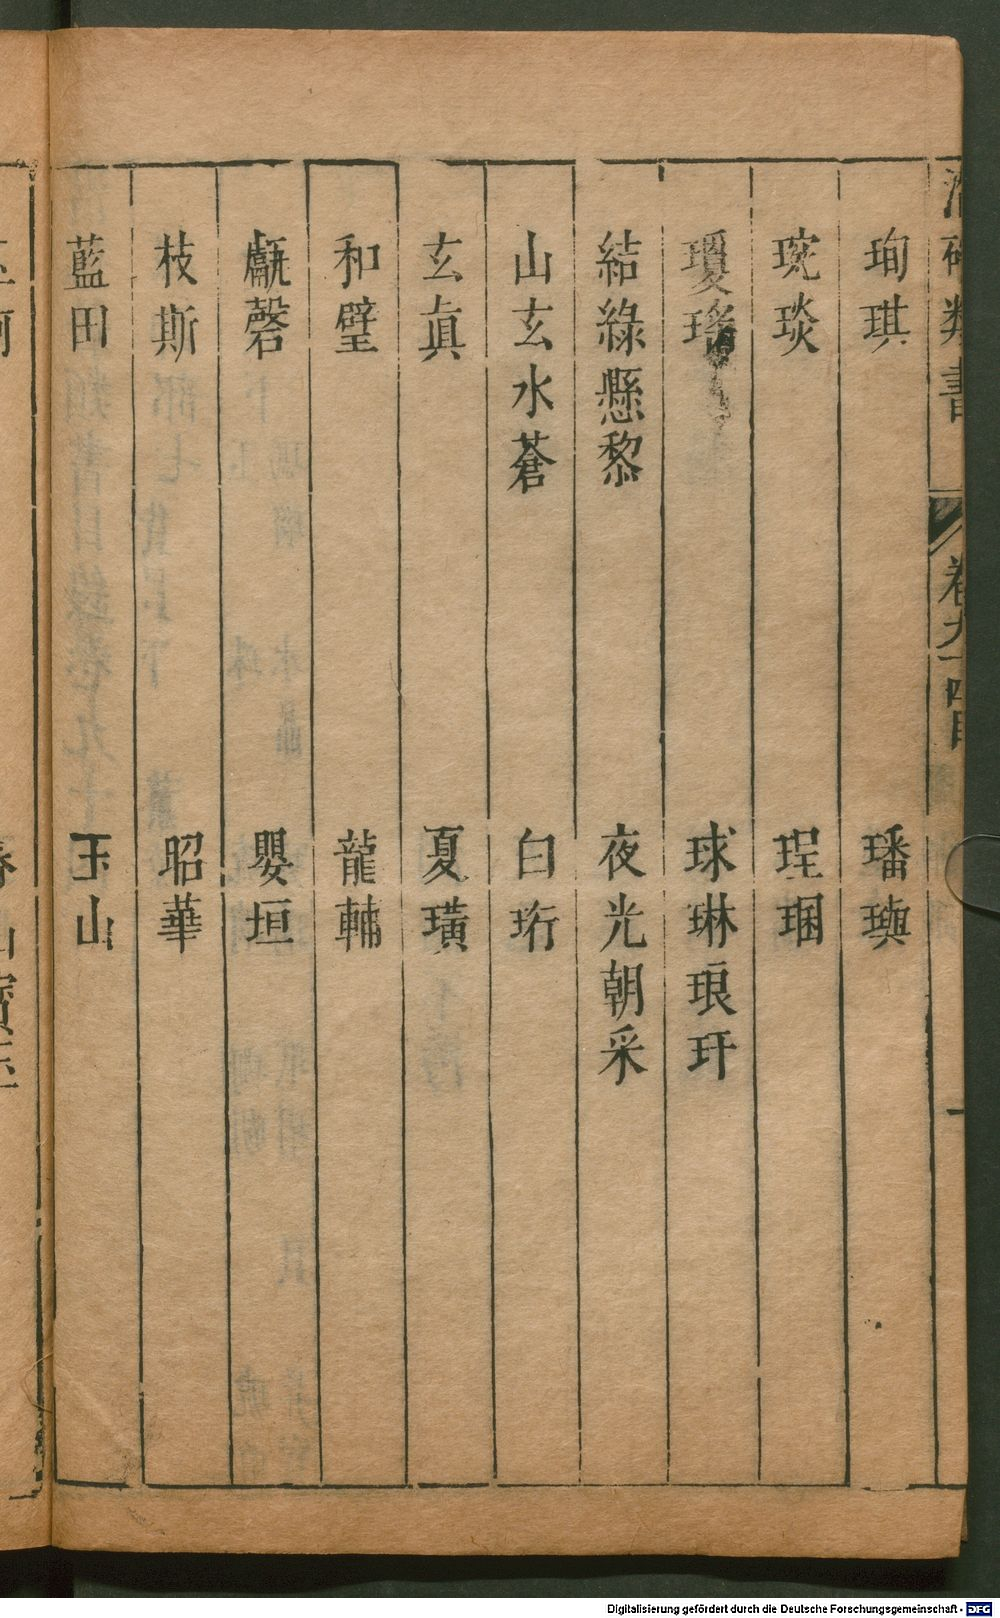 潛確類書
卷九十四目
一
珣琪
璠璵
琬琰
珵琄
瓊瑤
球琳琅玕
結綠懸黎
夜光朝采
山玄水蒼
白珩
玄真
夏璜
和璧
龍輔
甗磬
嬰垣
枝斯
昭華
藍田
玉山
Digitalisierung gefördert durch die Deutsche Forschungsgemeinschaft - DFG